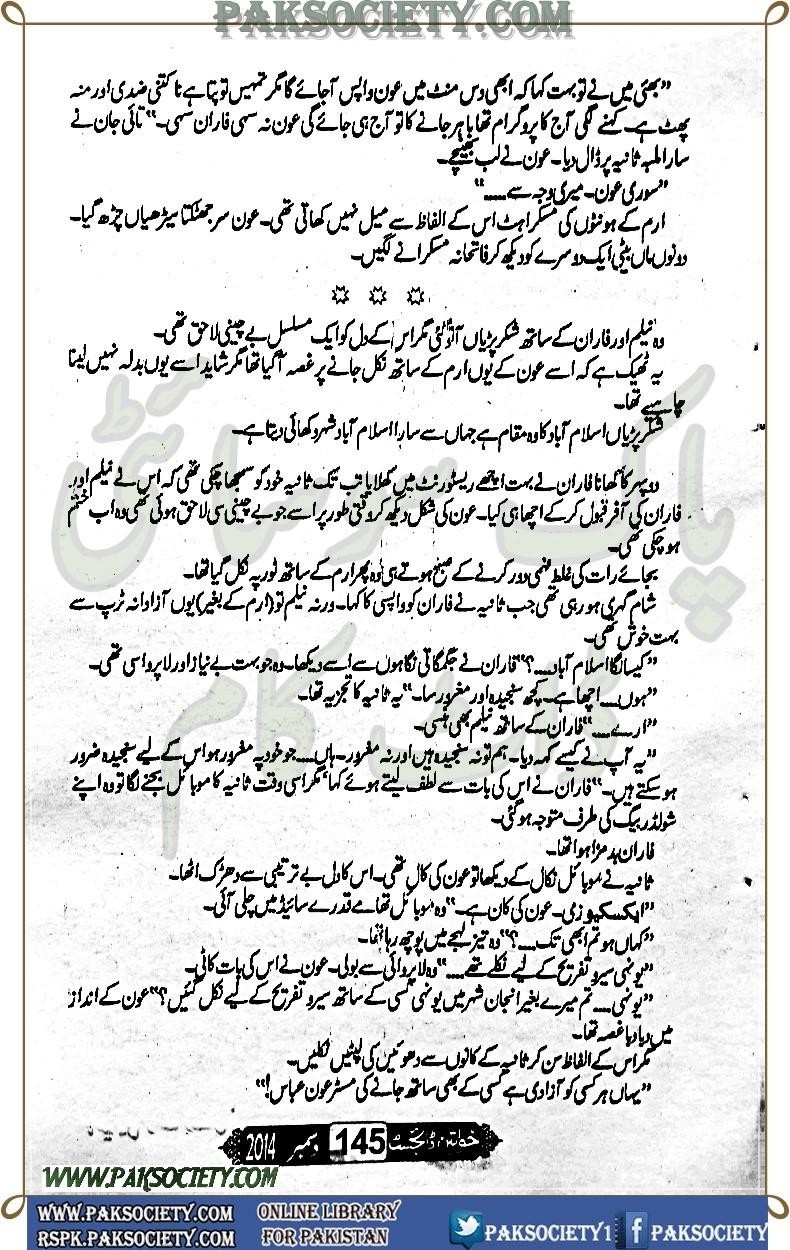 PAKSOCIETY.COM
”بھئی میں نے تو بہت کہا کہ ابھی دس منٹ میں عون واپس آجائے گا مگر تمہیں تو پتا ہے نا کتنی ضدی اور منہ
پھٹ ہے۔ کہنے لگی آج کا پروگرام تھا باہر جانے کا تو آج ہی جائے گی عون نہ سہی فاران سہی۔“ تائی جان نے
سارا ملبہ ثانیہ پر ڈال دیا۔ عون نے لب بھینچے۔
”سوری عون۔ میری وجہ سے ....“
ارم کے ہونٹوں کی مسکراہٹ اس کے الفاظ سے میل نہیں کھاتی تھی۔ عون سر جھٹکتا سیڑھیاں چڑھ گیا۔
دونوں ماں بیٹی ایک دوسرے کو دیکھ کر فاتحانہ مسکرانے لگیں۔
☼ ☼ ☼
وہ نیلم اور فاران کے ساتھ شکر پڑیاں آ تو گئی مگر اس کے دل کو ایک مسلسل بے چینی لاحق تھی۔
یہ ٹھیک ہے کہ اسے عون کے یوں ارم کے ساتھ نکل جانے پر غصہ آگیا تھا مگر شاید اسے یوں بدلہ نہیں لینا
چاہیے تھا۔
شکر پڑیاں اسلام آباد کا وہ مقام ہے جہاں سے سارا اسلام آباد شہر دکھائی دیتا ہے۔
دوپہر کا کھانا فاران نے بہت اچھے ریسٹورنٹ میں کھلایا تب تک ثانیہ خود کو سمجھا چکی تھی کہ اس نے نیلم اور
فاران کی آفر قبول کر کے اچھا ہی کیا۔ عون کی شکل دیکھ کر وقتی طور پر اسے جو بے چینی سی لاحق ہوئی تھی وہ اب ختم
ہو چکی تھی۔
بجائے رات کی غلط فہمی دور کرنے کے صبح ہوتے ہی وہ پھر ارم کے ساتھ ٹور پہ نکل گیا تھا۔
شام گہری ہو رہی تھی جب ثانیہ نے فاران کو واپسی کا کہا۔ ورنہ نیلم تو (ارم کے بغیر) یوں آزادانہ ٹرپ سے
بہت خوش تھی۔
”کیسا لگا اسلام آباد....؟“ فاران نے جگمگاتی نگاہوں سے اسے دیکھا۔ وہ جو بہت بے نیاز اور لاپروا سی تھی۔
”ہوں.... اچھا ہے۔ کچھ سنجیدہ اور مغرور سا۔“ یہ ثانیہ کا تجزیہ تھا۔
”ارے....“ فاران کے ساتھ نیلم بھی ہنسی۔
”یہ آپ نے کیسے کہہ دیا۔ ہم تو نہ سنجیدہ ہیں اور نہ مغرور۔ ہاں.... جو خود پہ مغرور ہو اس کے لیے سنجیدہ ضرور
ہو سکتے ہیں۔“ فاران نے اس کی بات سے لطف لیتے ہوئے کہا‘ مگر اسی وقت ثانیہ کا موبائل بجنے لگا تو وہ اپنے
شولڈر بیگ کی طرف متوجہ ہو گئی۔
فاران بدمزا ہوا تھا۔
ثانیہ نے موبائل نکال کے دیکھا تو عون کی کال تھی۔ اس کا دل بے ترتیبی سے دھڑک اٹھا۔
”ایکسکیوزمی۔ عون کی کال ہے۔“ وہ موبائل تھامے قدرے سائیڈ میں چلی آئی۔
”کہاں ہو تم ابھی تک....؟“ وہ تیز لہجے میں پوچھ رہا تھا۔
”یونہی سیر و تفریح کے لیے نکلے تھے....“ وہ لاپروائی سے بولی۔ عون نے اس کی بات کاٹی۔
”یونہی.... تم میرے بغیر انجان شہر میں یونہی کسی کے ساتھ سیر و تفریح کے لیے نکل گئیں؟“ عون کے انداز
میں دبا دبا غصہ تھا۔
مگر اس کے الفاظ سن کر ثانیہ کے کانوں سے دھوئیں کی لپٹیں نکلیں۔
”یہاں ہر کسی کو آزادی ہے کسی کے بھی ساتھ جانے کی مسٹر عون عباس!“
خواتین ڈائجسٹ 145 دسمبر 2014
پاک سوسائٹی
ڈاٹ کام
WWW.PAKSOCIETY.COM
WWW.PAKSOCIETY.COM ONLINE LIBRARY PAKSOCIETY1 PAKSOCIETY
RSPK.PAKSOCIETY.COM FOR PAKISTAN